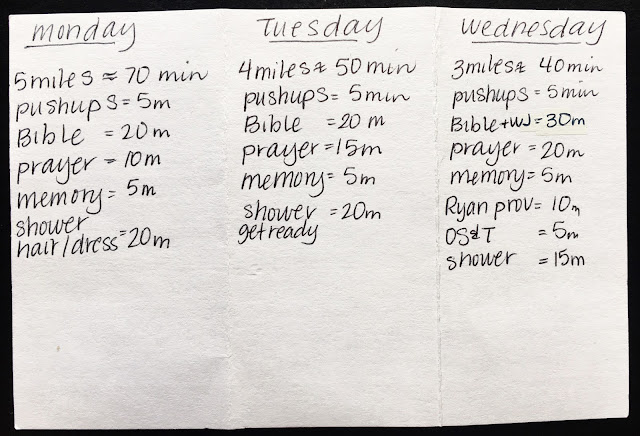 monday
5 miles ≈ 70 min
pushups = 5m
Bible = 20m
prayer = 10m
memory = 5m
shower
hair/dress = 20m
Tuesday
4 miles ≈ 50 min
pushups = 5 min
Bible = 20 m
prayer = 15m
memory = 5m
shower = 20m
get ready
wednesday
3 miles ≈ 40 min
pushups = 5 min
Bible + WJ = 30m
prayer = 20m
memory = 5m
Ryan prov = 10m
OS&T = 5m
shower = 15m